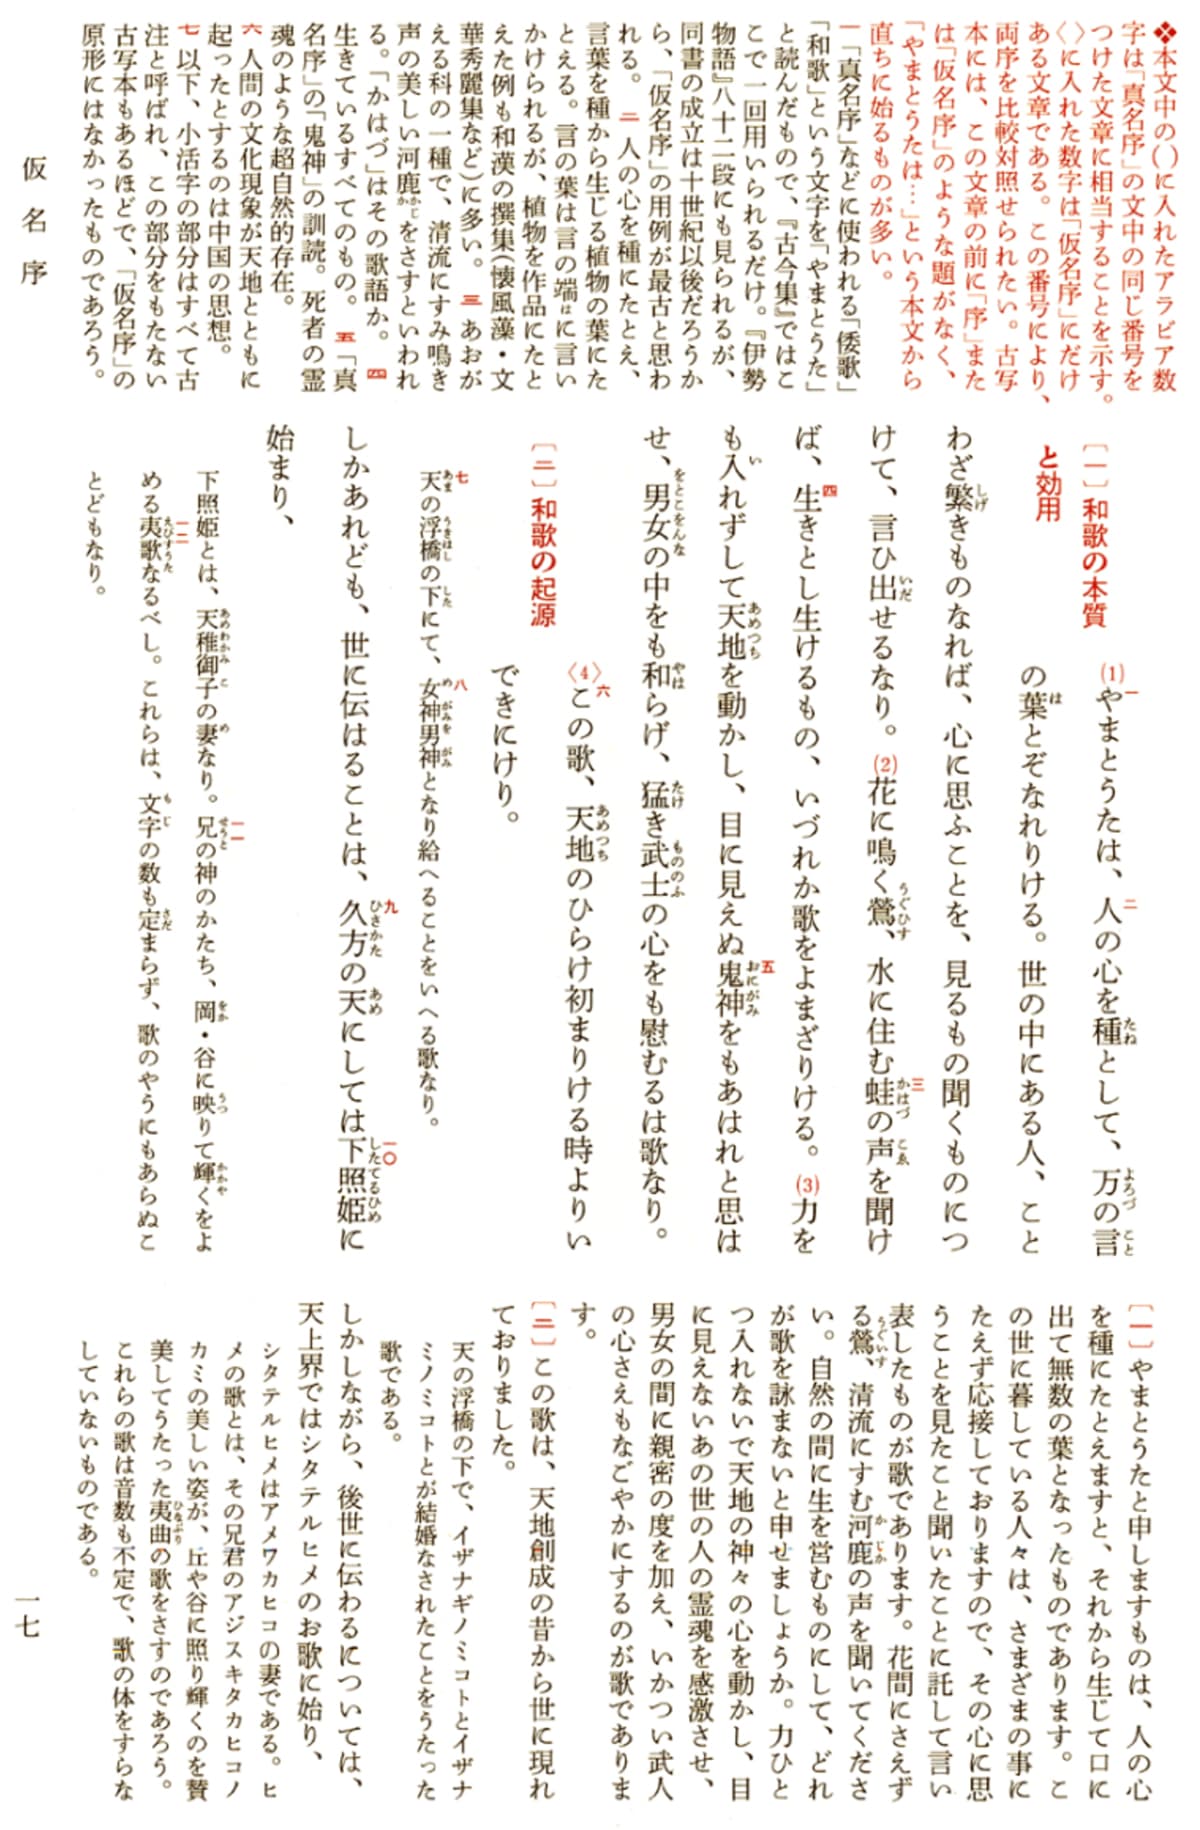 ❖本文中の( )に入れたアラビア数
字は「真名序」の文中の同じ番号を
つけた文章に相当することを示す。
〈 〉に入れた数字は「仮名序」にだけ
ある文章である。この番号により、
両序を比較対照せられたい。古写
本には、この文章の前に「序」また
は「仮名序」のような題がなく、
「やまとうたは…」という本文から
直ちに始るものが多い。
一 「真名序」などに使われる「倭歌」
「和歌」という文字を「やまとうた」
と読んだもので、『古今集』ではこ
こで一回用いられるだけ。『伊勢
物語』八十二段にも見られるが、
同書の成立は十世紀以後だろうか
ら、「仮名序」の用例が最古と思わ
れる。 二 人の心を種にたとえ、
言葉を種から生じる植物の葉にた
とえる。言の葉は言の端はに言い
かけられるが、植物を作品にたと
えた例も和漢の撰集(懐風藻・文
華秀麗集など)に多い。 三 あおが
える科の一種で、清流にすみ鳴き
声の美しい河鹿かじかをさすといわれ
る。「かはづ」はその歌語か。 四
生きているすべてのもの。 五 「真
名序」の「鬼神」の訓読。死者の霊
魂のような超自然的存在。
六 人間の文化現象が天地とともに
起ったとするのは中国の思想。
七 以下、小活字の部分はすべて古
注と呼ばれ、この部分をもたない
古写本もあるほどで、「仮名序」の
原形にはなかったものであろう。
仮名序
〔一〕和歌の本質
と効用
(1)一やまとうたは、二人の心を種たねとして、万よろづの言こと
の葉はとぞなれりける。世の中にある人、こと
わざ繁しげきものなれば、心に思ふことを、見るもの聞くものにつ
けて、言ひ出いだせるなり。(2)花に鳴く鶯うぐひす、水に住む三蛙かはづの声こゑを聞け
ば、四生きとし生けるもの、いづれか歌をよまざりける。(3)力を
も入いれずして天地あめつちを動かし、目に見えぬ五鬼神おにがみをもあはれと思は
せ、男女をとこをんなの中をも和やはらげ、猛たけき武士もののふの心をも慰むるは歌なり。
〔二〕和歌の起源
〈4〉六この歌、天地あめつちのひらけ初まりける時よりい
できにけり。
七天あまの浮橋うきはしの下したにて、八女神めがみ男神をがみとなり給へることをいへる歌なり。
しかあれども、世に伝はることは、九久方ひさかたの天あめにしては一〇下照姫したてるひめに
始まり、
下照姫とは、天稚御子あめわかみこの妻めなり。一一兄せうとの神のかたち、岡をか・谷に映うつりて輝かかやくをよ
める一二夷歌えびすうたなるべし。これらは、文字もじの数も定さだまらず、歌のやうにもあらぬこ
とどもなり。
〔一〕やまとうたと申しますものは、人の心
を種にたとえますと、それから生じて口に
出て無数の葉となったものであります。こ
の世に暮している人々は、さまざまの事に
たえず応接しておりますので、その心に思
うことを見たこと聞いたことに託して言い
表したものが歌であります。花間にさえず
る鶯うぐいす、清流にすむ河鹿かじかの声を聞いてくださ
い。自然の間に生を営むものにして、どれ
が歌を詠まないと申せましょうか。力ひと
つ入れないで天地の神々の心を動かし、目
に見えないあの世の人の霊魂を感激させ、
男女の間に親密の度を加え、いかつい武人
の心さえもなごやかにするのが歌でありま
す。
〔二〕この歌は、天地創成の昔から世に現れ
ておりました。
天の浮橋の下で、イザナギノミコトとイザナ
ミノミコトとが結婚なされたことをうたった
歌である。
しかしながら、後世に伝わるについては、
天上界ではシタテルヒメのお歌に始り、
シタテルヒメはアメワカヒコの妻である。ヒ
メの歌とは、その兄君のアジスキタカヒコノ
カミの美しい姿が、丘や谷に照り輝くのを賛
美してうたった夷曲ひなぶりの歌をさすのであろう。
これらの歌は音数も不定で、歌の体をすらな
していないものである。
一七